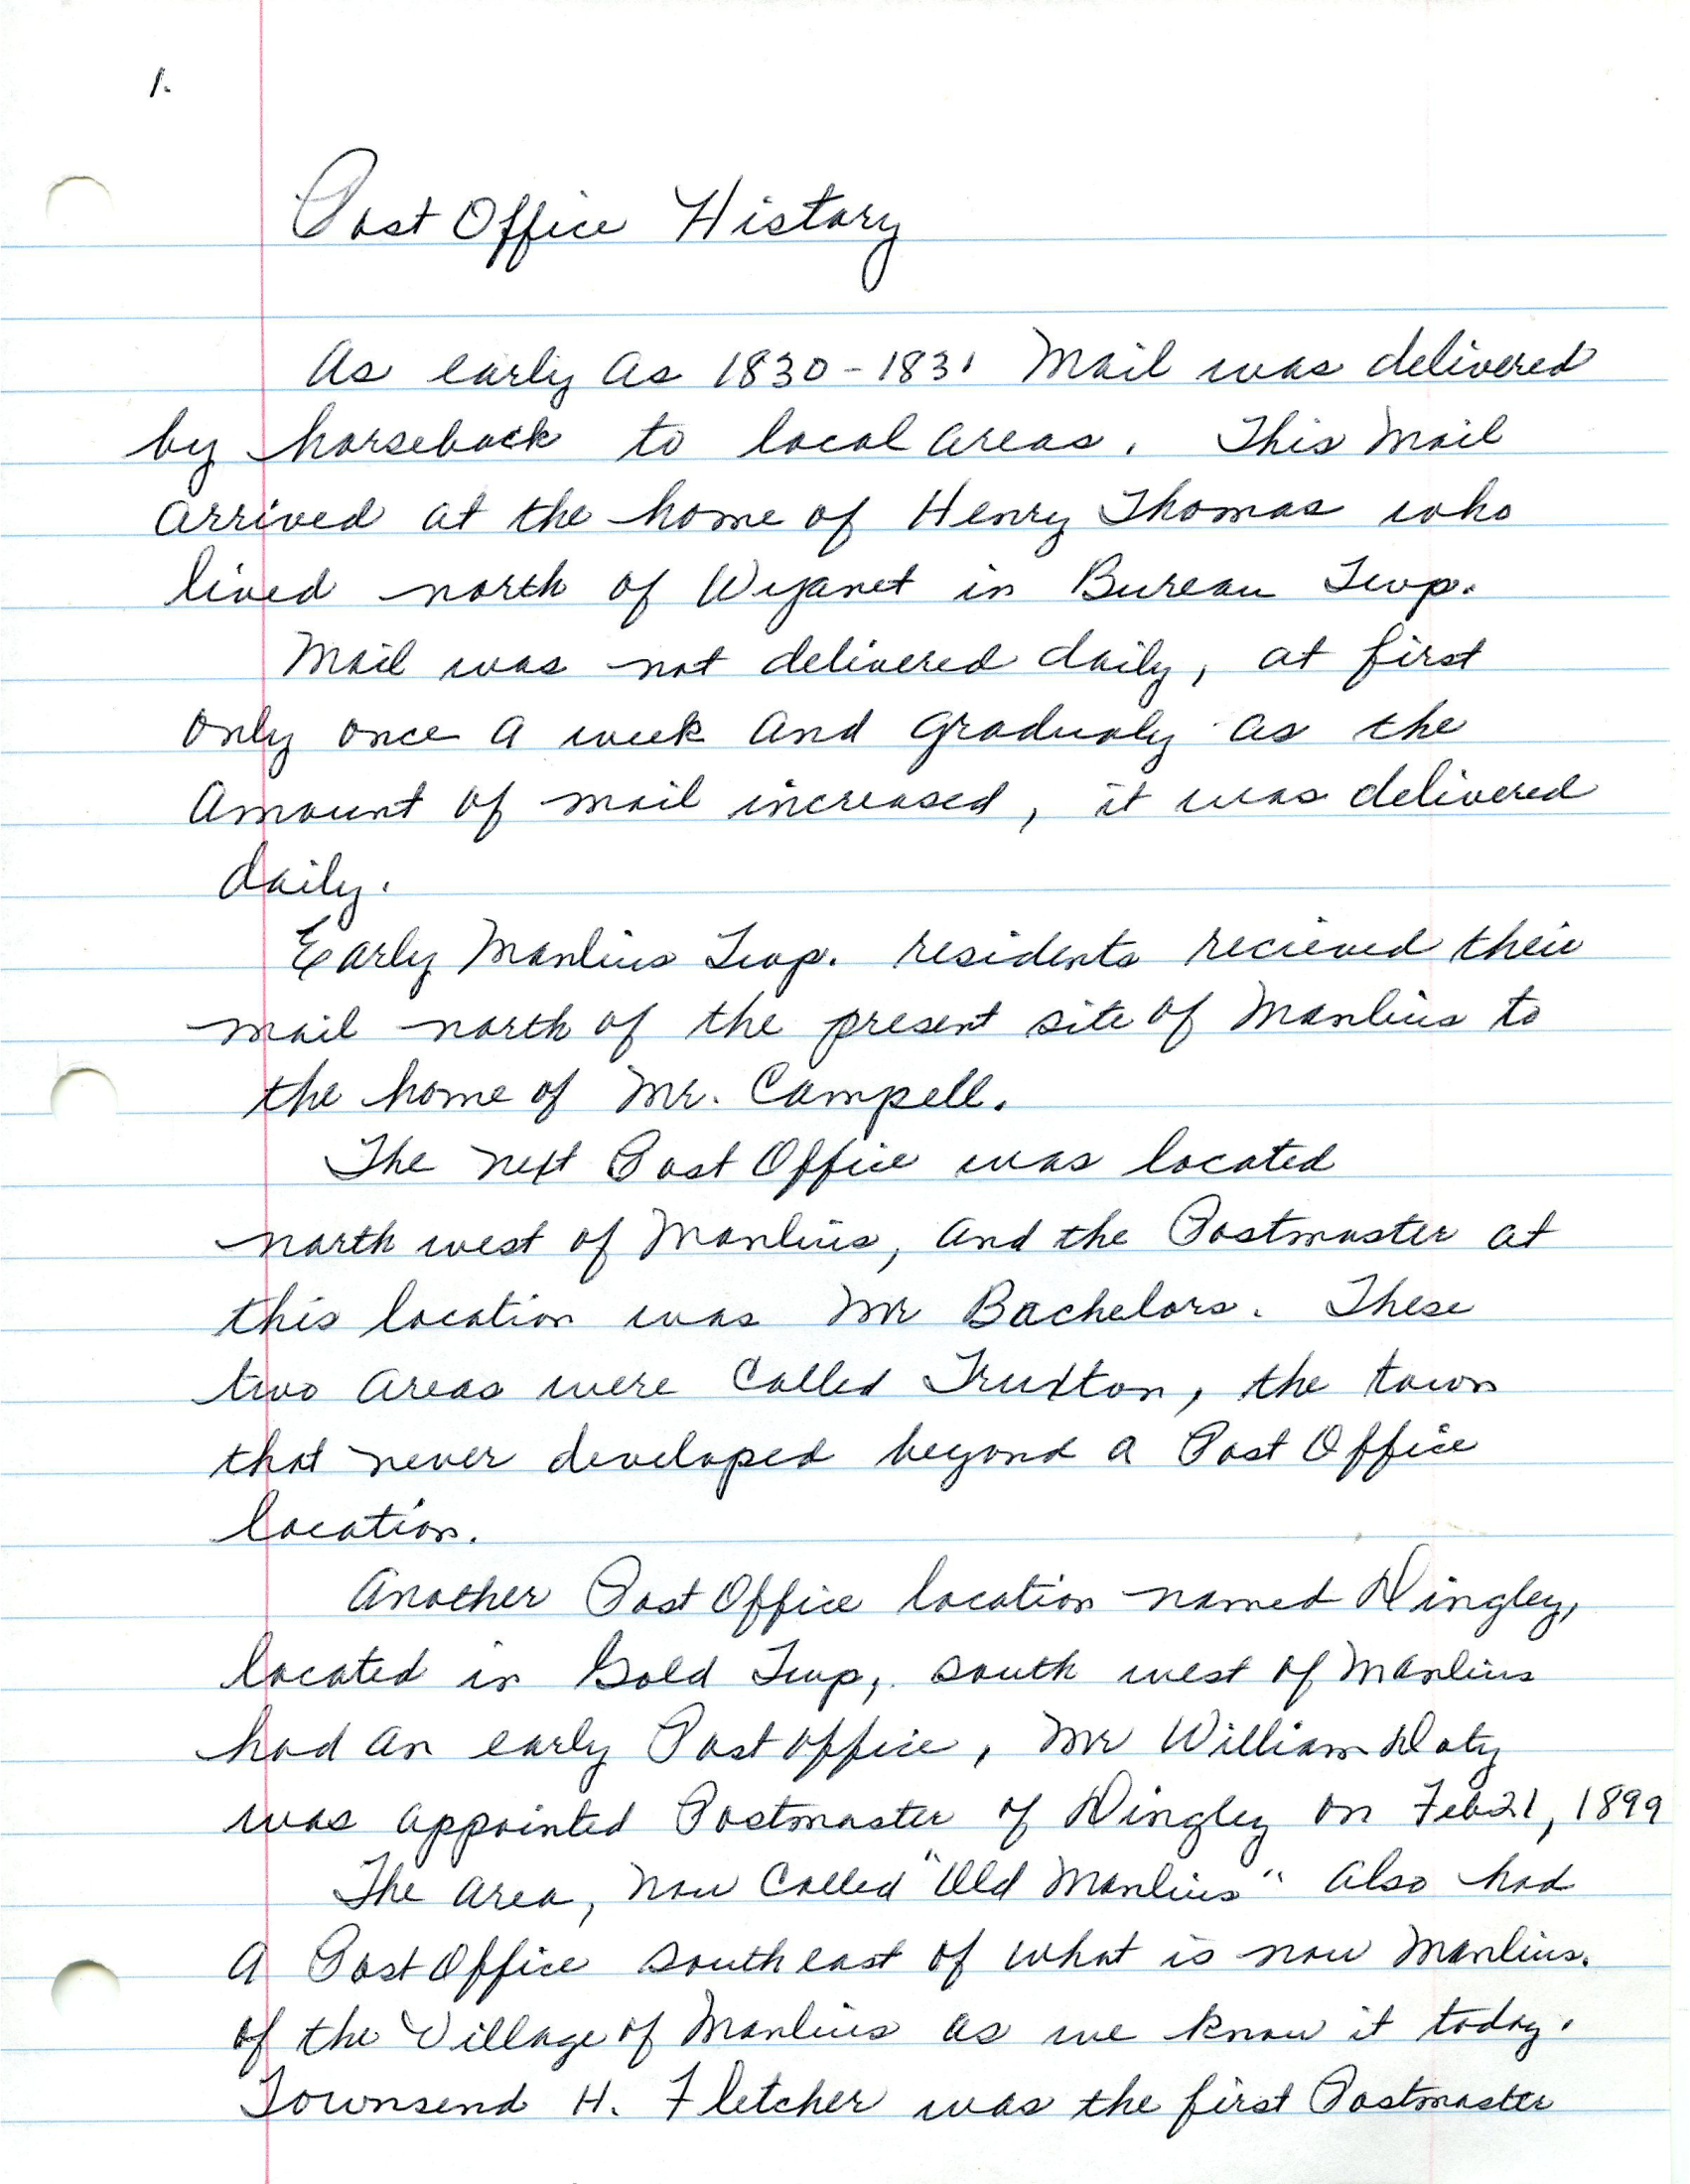 1.
Post Office History
As early as 1830-1831 Mail was delivered
by horseback to local areas. This Mail
arrived at the home of Henry Thomas who
lived north of Wyanet in Bureau Twp.
Mail was not delivered daily, at first
only once a week and gradualy as the
amount of mail increased, it was delivered
daily.
Early Manlius Twp. residents recieved their
mail north of the present site of Manlius to
the home of Mr. Campell.
The next Post Office was located
north west of Manlius, and the Postmaster at
this location was Mr Bachelors. These
two areas were called Truxton, the town
that never developed beyond a Post Office
location.
Another Post Office location named Dingley,
located in Gold Twp, south west of Manlius
had an early Post office, Mr William Doty
was appointed Postmaster of Dingley on Feb 21, 1899
The area, now called "Old Manlius" also had
a Post Office south east of what is now Manlius.
of the Village of Manlius as we know it today.
Townsend H. Fletcher was the first Postmaster